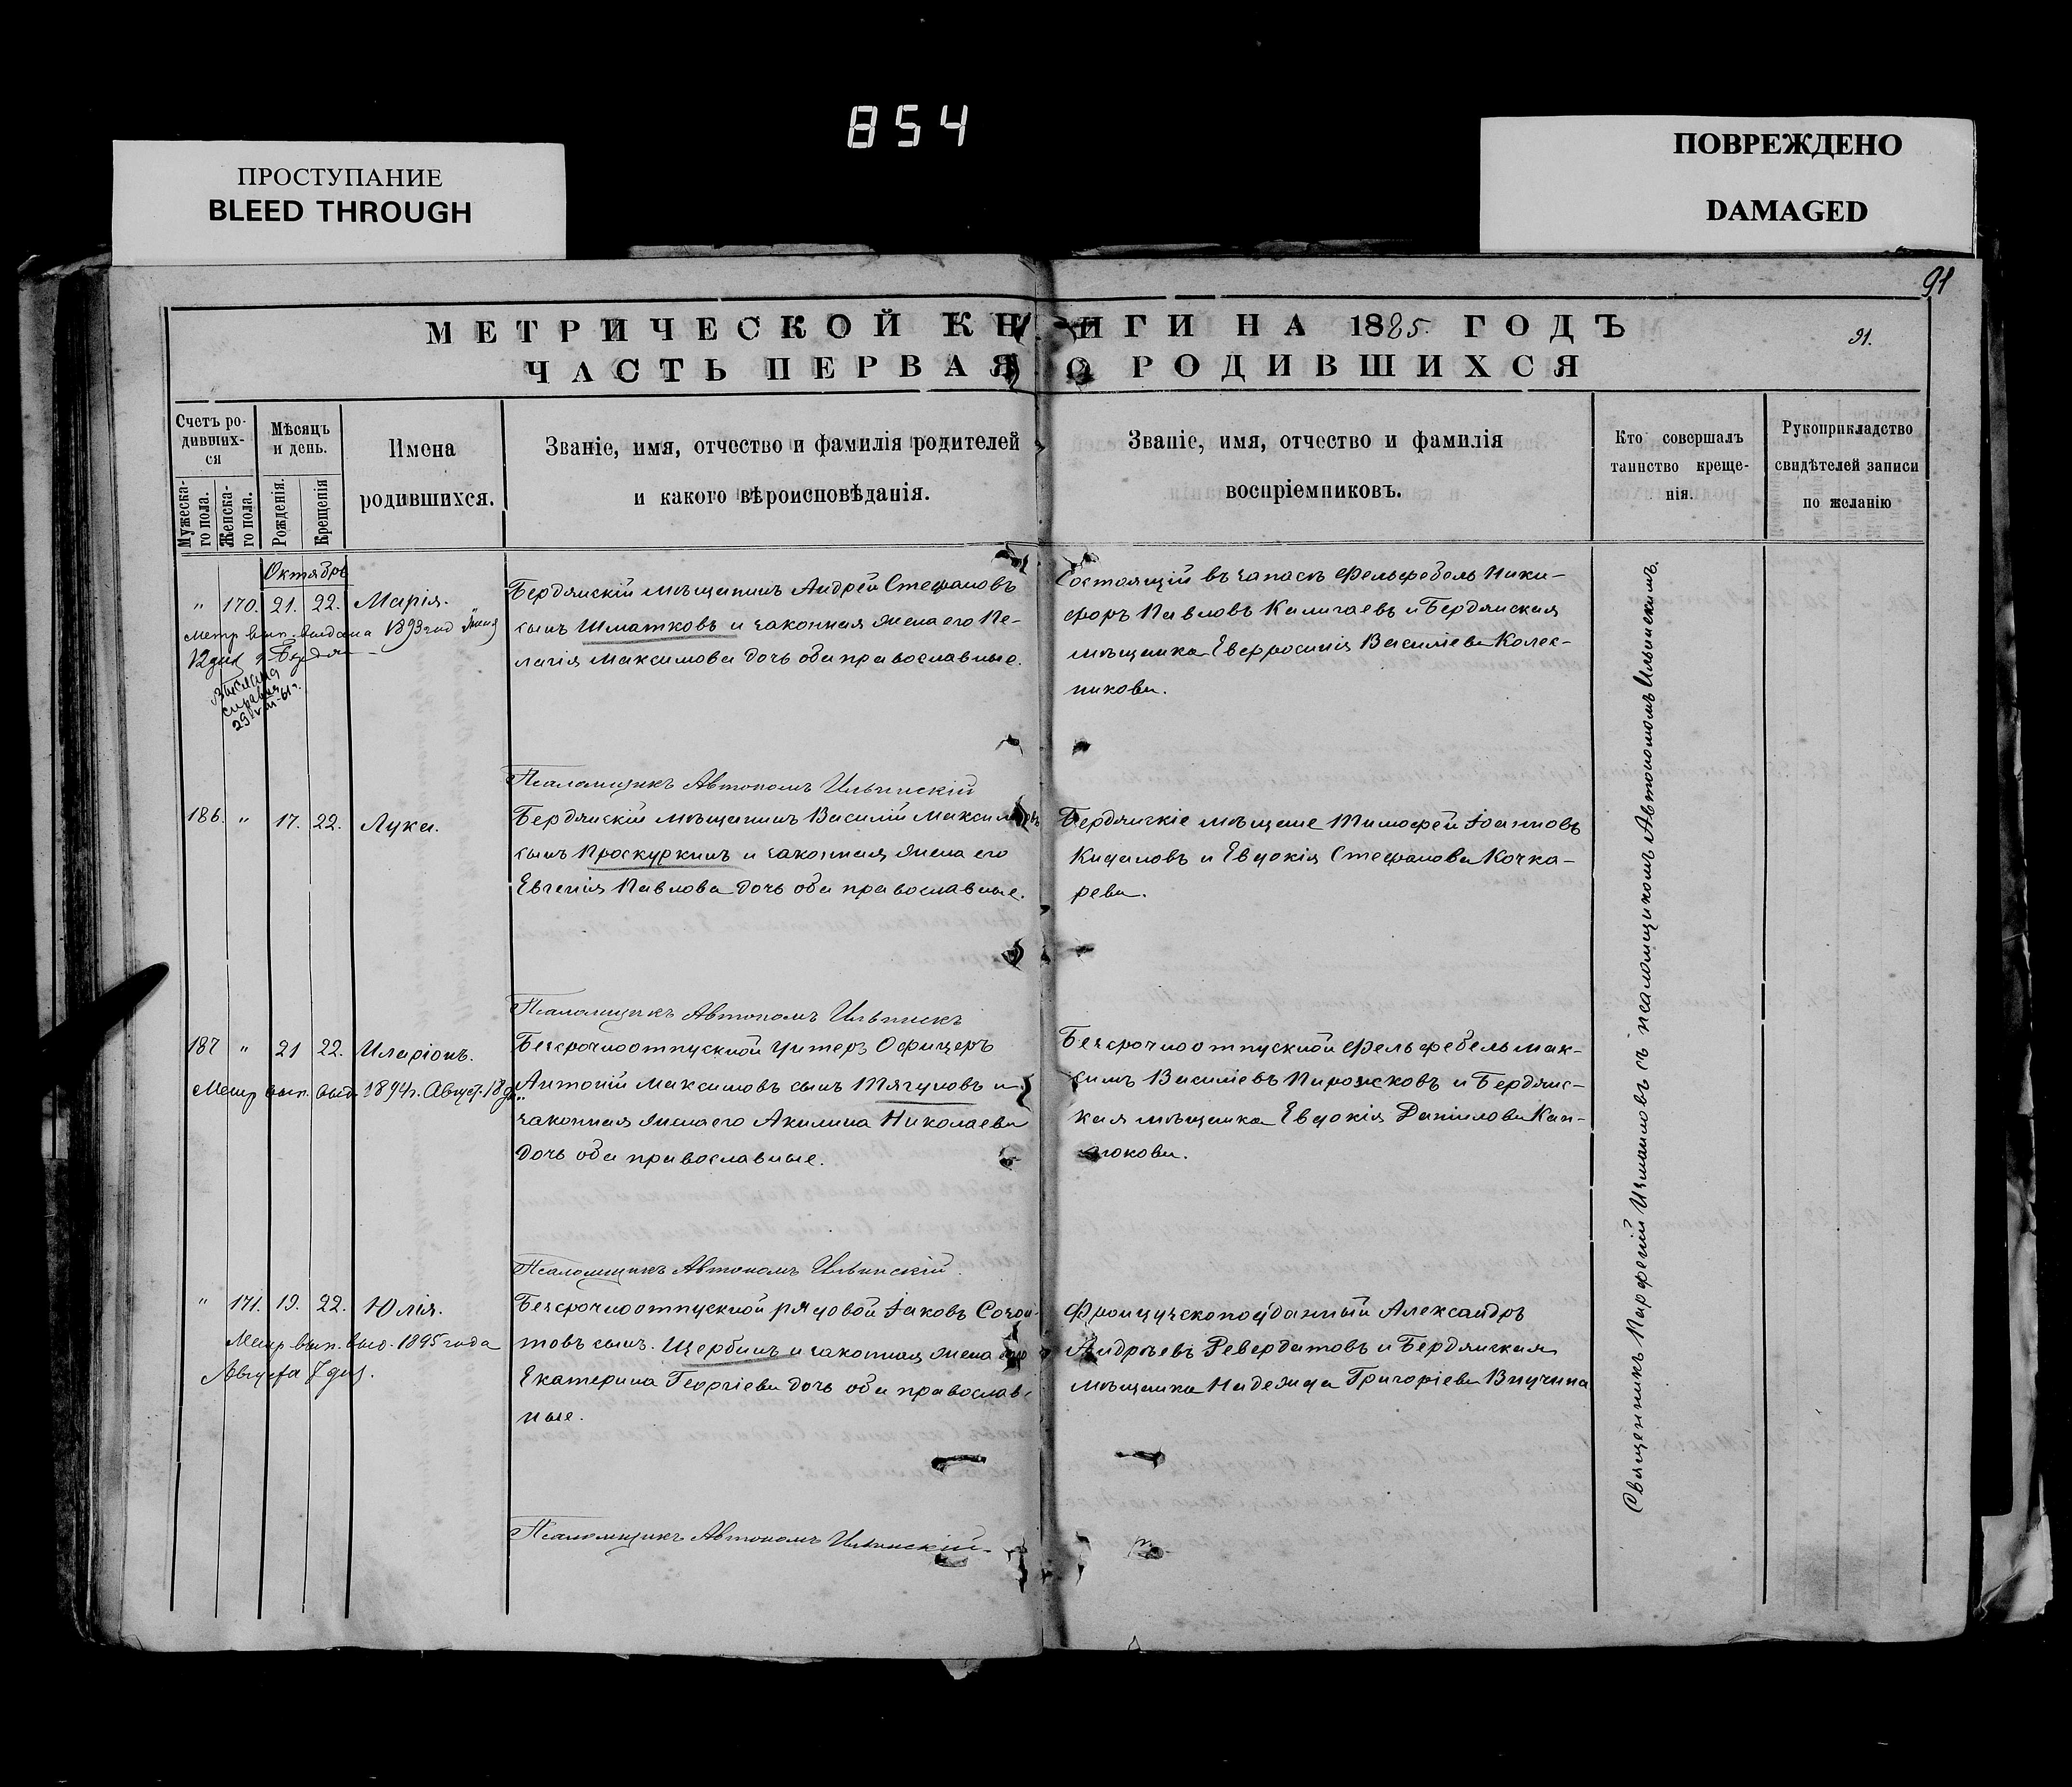 854
ПРОСТУПАНИЕ
BLEED THROUGH
ПОВРЕЖДЕНО
DAMAGED
91
МЕТРИЧЕСКОЙ КНИГИ НА 1885 ГОДЪ
91.
ЧАСТЬ ПЕРВАЯ О РОДИВШИХСЯ
Счетъ ро-
дивших-
ся
Мужеска-
го пола.
Женска-
го пола.
Мѣсяцъ
и день.
Рожденія.
Крещенія
Имена
родившихся.
Званіе, имя, отчество и фамилія родителей
и какого вѣроисповѣданія.
Званіе, имя, отчество и фамилія
воспріемниковъ.
Кто совершалъ
таинство креще-
нія.
Рукоприкладство
свидѣтелей записи
по желанію
Октябрь
" 170. 21. 22. Марія.
Метр. вып. выдана 1893 год
12 дня
29
Бердянскій мѣщанинъ Андрей Стефановъ
сынъ Шматковъ и законная жена его Пе-
лагія Максимова дочь оба православные.
Состоящій въ запасѣ фельдфебель Ники-
форъ Павловъ Каличаевъ и Бердянская
мѣщанка Евфросинія Васильева Колес-
никова.
Псаломщикъ Автономъ Ильинскій
186. " 17. 22. Лука.
Бердянскій мѣщанинъ Василій Максимовъ
сынъ Проскуринъ и законная жена его
Евгенія Павлова дочь оба православные.
Бердянскіе мѣщане Тимофей Іоанновъ
и Евдокія Стефанова Кочка-
рева.
Псаломщикъ Автономъ Ильинск
187 " 21 22. Иларіонъ.
Метр. вып. выд. 1894 г. Август. 18 дн.
Безсрочноотпускной Унтеръ Офицеръ
Антоній Максимовъ сынъ Тягуновъ и
законная жена его Акилина Николаева
дочь оба православные.
Безсрочноотпускной фельдфебель Мак-
симъ Васильевъ Пирожковъ и Бердянс-
кая мѣщанка Евдокія Данилова Кап-
люкова.
Псаломщикъ Автономъ Ильинскій.
" 171. 19. 22. Юлія.
Метр. вып. выд. 1895 года
Августа 7 дня.
Безсрочноотпускной рядовой Іаковъ Созон-
товъ сынъ. Щербинъ и законная жена его
Екатерина Георгіева дочь оба православ-
ные.
Французскоподданный Александръ
Андреевъ Ревердатовъ и Бердянская
мѣщанка Надежда Григоріева Внучина
Псаломщикъ Автономъ Ильинскій.
Священникъ Парфеній Измаиловъ съ псаломщикомъ Автономомъ Ильинскимъ.